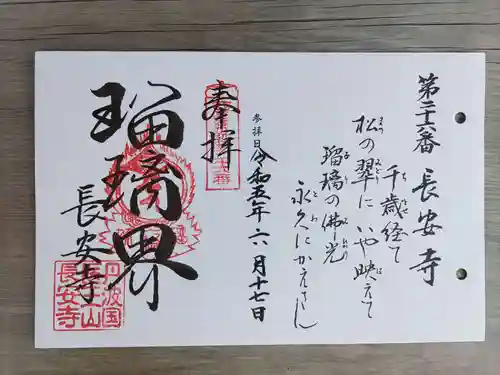 第二十六番 長安寺
千歳経て
松の翠に いや映えて
瑠璃の佛光
永久にかえさん
参拝日 令和五年 六月十七日
奉拝
瑠璃界
長安寺
丹波国
長安寺